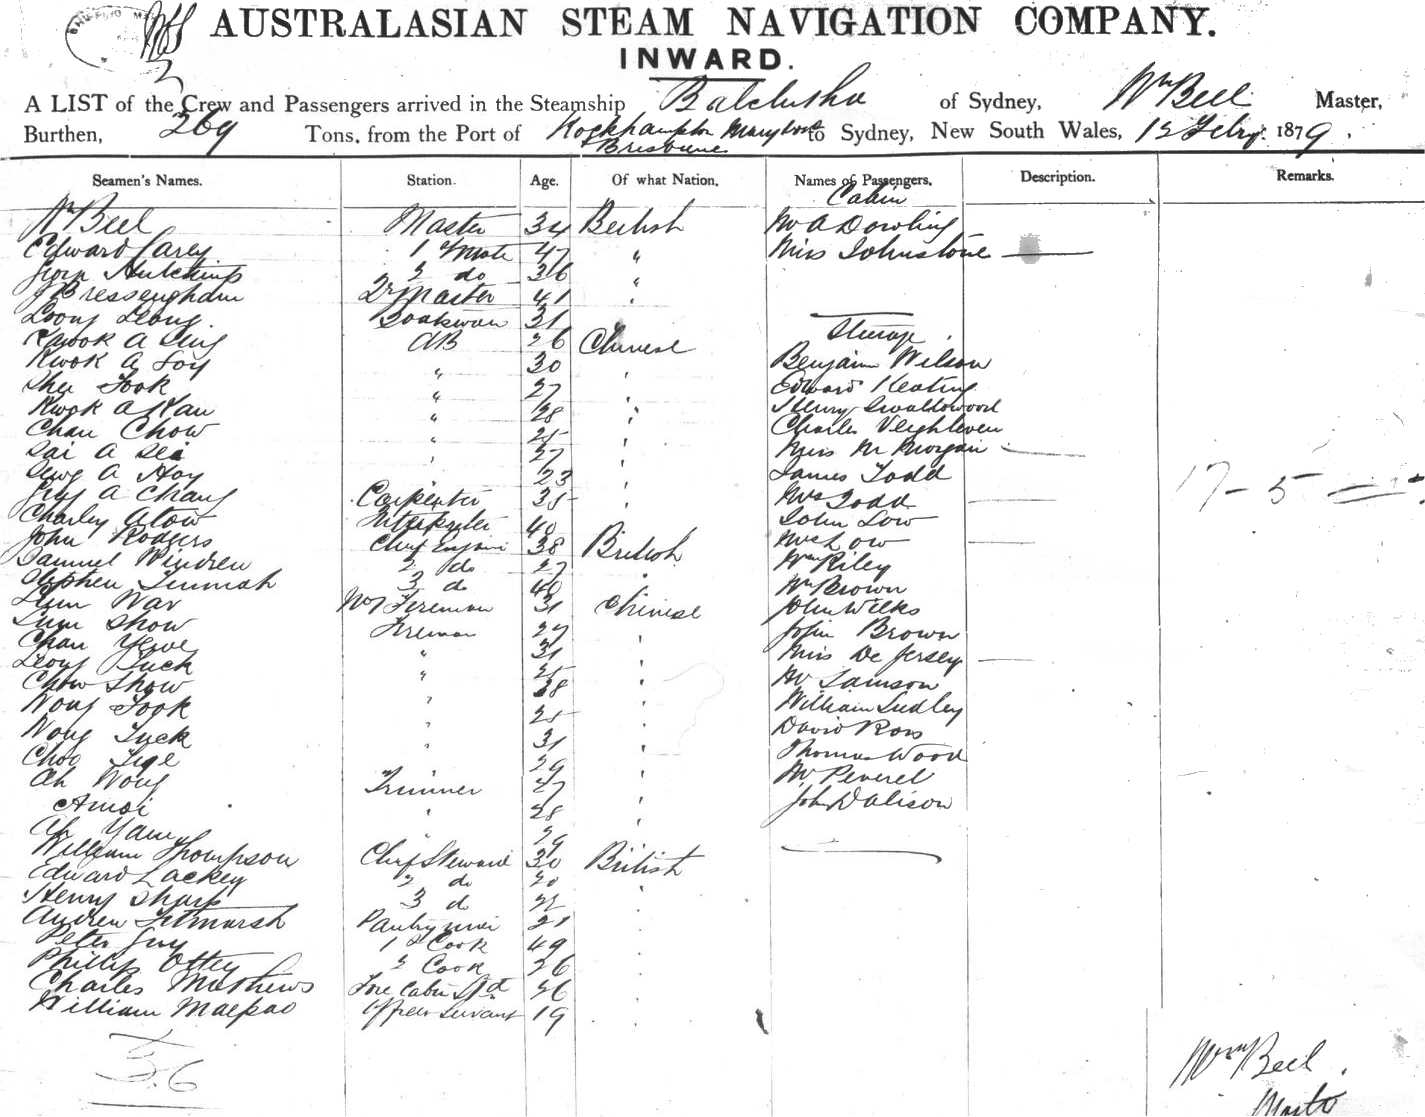 AUSTRALASIAN STEAM NAVIGATION COMPANY.
INWARD.
A LIST of the Crew and Passengers arrived in the Steamship Balclutha of Sydney, Wm Beel Master,
Burthen, 269 Tons, from the Port of Rockhampton Maryboro to Sydney, New South Wales, 12 Feby. 1879.
Brisbane
Seamen's Names. Station. Age. Of what Nation. Names of Passengers. Description. Remarks.
Cabin
Wm Beel Master 34 British Mr A Dowling
Edward Carey 1 Mate 47 " Miss Johnstone
Hutchins 2 do 36 "
J Bressengham 2r Master 41 "
Loong Leong 31
Steerage
Kwook A Sing AB 26 Chinese
Kwok A Foy " 30 Benjamin Wilson
Shu Fook " 27 Edward Keating
Kwok A Kau " 28 Henry Swallowood
Chan Chow " 25 Charles
Sai A Sei " 27 Miss M Morgan
A Hoy 23 James Todd
A Chang Carpenter 35 Mrs Todd
17 - 5 -
Charley Atow Interpreter 40 John Low
John Rodgers Chief Engini 38 British Mrs Low
Samuel Windren 2 do 27 Wm Riley
Stephen 3 do 40 Wm Brown
Lum War No 1 Fireman 31 Chinese John Wilks
Lum Show Fireman 27 John Brown
Chan " 31 Miss De Jersey
Leong Luck " 25 Mr Samson
Chow Show 28 William Sudley
Wong Fook " 25 David Ross
Wong Luck " 31 Thomas Wood
Choo 29 Mr Peverel
Ah Wong Trimmer 27 John Dalison
Amoi " 28
Ah Yam " 29
William Thompson Chief Steward 30 British
Edward Lackey 2 do 20
Henry Sharp 3 do 22
Andrew Titmarsh Pantry man 21
Peter Guy 1st Cook 49
Phillip Ottey 2 Cook 26
Charles Mathews Fore Cabin Std 26
William Macpao Officers Servant 19
36
Wm Beel
Master